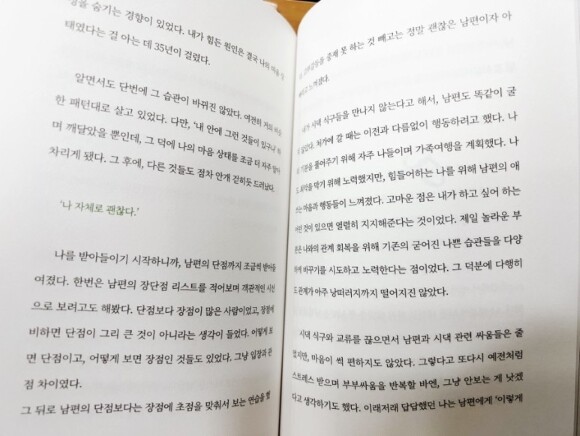 을 숨기는 경향이 있었다. 내가 힘든 원인은 결국 나의
태였다는 걸 아는 데 35년이 걸렸다.
알면서도 단번에 그 습관이 바뀌진 않았다. 여전히
한 패턴대로 살고 있었다. 다만, '내 안에 그런 것들이 있구나'
며 깨달았을 뿐인데, 그 덕에 나의 마음 상태를 조금 더 자주 알아
차리게 됐다. 그 후에, 다른 것들도 점차 안개 걷히듯 드러났다.
'나 자체로 괜찮다.'
나를 받아들이기 시작하니까, 남편의 단점까지 조금씩 받아들
여졌다. 한번은 남편의 장단점 리스트를 적어보며 객관적인 시선
으로 보려고도 해봤다. 단점보다 장점이 많은 사람이었고, 장점에
비하면 단점이 그리 큰 것이 아니라는 생각이 들었다. 어떻게 보
면 단점이고, 어떻게 보면 장점인 것들도 있었다. 그냥 입장과 관
점 차이였다.
그 뒤로 남편의 단점보다는 장점에 초점을 맞춰서 보는 연습을 했
중재 못 하는 것 빼고는 정말 괜찮은 남편이자 아
시댁 식구들을 만나지 않는다고 해서, 남편도 똑같이 굴
않았다. 처가에 갈 때는 이전과 다름없이 행동하려고 했다. 나
기분을 풀어주기 위해 자주 나들이며 가족여행을 계획했다. 나
막기 위해 노력했지만, 힘들어하는 나를 위해 남편의 애
쓰는 마음과 행동들이 느껴졌다. 고마운 점은 내가 하고 싶어 하는
것이 있으면 열렬히 지지해준다는 것이었다. 제일 놀라운 부
분은 나와의 관계 회복을 위해 기존의 굳어진 나쁜 습관들을 다양
하게 바꾸기를 시도하고 노력한다는 점이었다. 그 덕분에 다행히
도 관계가 아주 낭떠러지까지 떨어지진 않았다.
시댁 식구와 교류를 끊으면서 남편과 시댁 관련 싸움들은 줄
었지만, 마음이 썩 편하지도 않았다. 그렇다고 또다시 예전처럼
스트레스 받으며 부부싸움을 반복할 바엔, 그냥 안보는 게 낫겠
다고 생각하기도 했다. 이래저래 답답했던 나는 남편에게 '이렇게